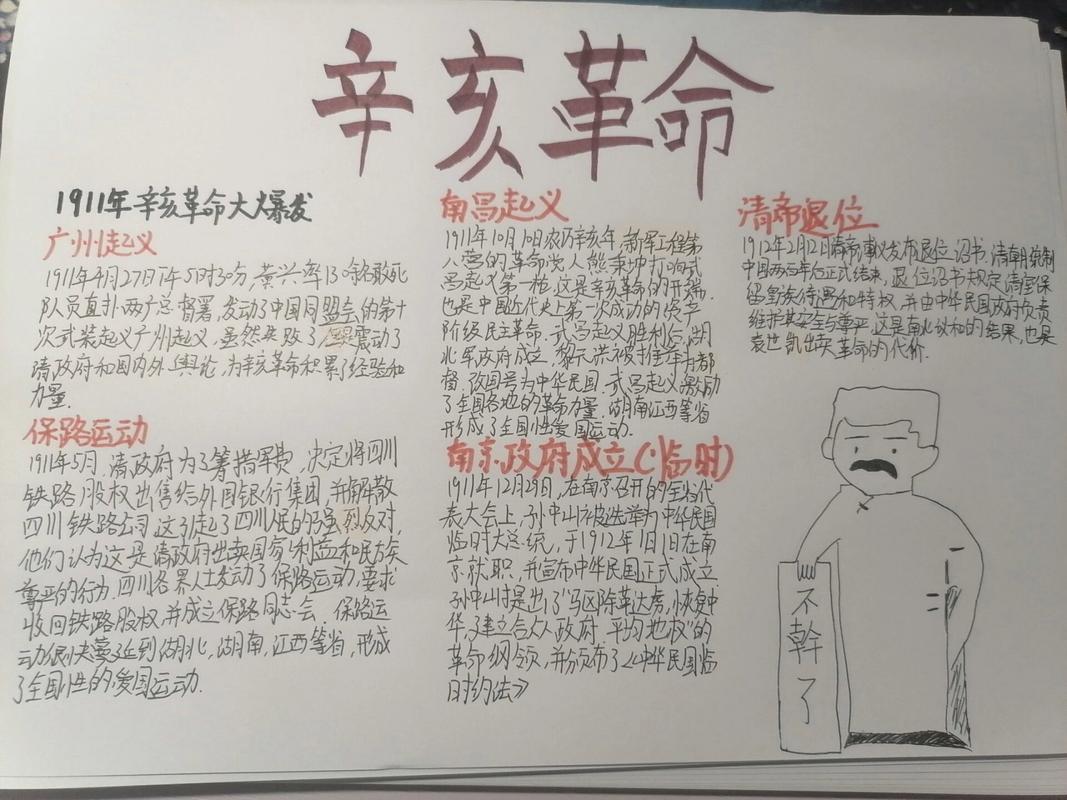 辛亥革命
1911年辛亥革命大爆发
广州起义
1911年4月27日下午5时30分,黄兴率130余名敢死
队员直扑两广总督署,发动了中国同盟会的第十
次武装起义广州起义.虽然失败了但是震动了
清政府和国内外舆论,为辛亥革命积累了经验和
力量.
保路运动
1911年5月,清政府为了筹措军费,决定将四川
铁路股权出售给外国银行集团,并解散
四川铁路公司 这引起了四川人民的强烈反对.
他们认为这是清政府出卖国家利益和民族
尊严的行为.四川各界人士发动了保路运动,要求
收回铁路股权,并成立保路同志会. 保路运
动很快蔓延到湖北,湖南,江西等省,形成
了全国性的爱国运动.
南昌起义
1911年10月10日农历辛亥年,新军工程第
八营的革命党人熊秉坤打响武
昌起义第一枪,这是辛亥革命的开端.
也是中国近代史上第一次成功的资产
阶级民主革命.武昌起义胜利后,湖
北军政府成立,黎元洪被推举为都
督.改国号为中华民国.武昌起义激励
了全国各地的革命力量.湖南江西等省
形成了全国性爱国运动.
南京政府成立(临时)
1911年12月29日,在南京召开的全省代
表大会上,孙中山被选举为中华民国
临时大总统,于1912年1月1日在南
京就职,并宣布中华民国正式成立.
孙中山时提出了"马区除革达虏,恢复中
华,建立合众政府,平均地权"的
革命纲领,并颁布了《中华民国临
时约法》
清帝退位
1912年2月12日清帝溥仪发布退位诏书,清朝统制
中国两百年后正式结束,退位诏书规定,清室保
留皇族待遇和特权,并由中华民国政府负责
维护其安全与尊严,这是南北议和的结果,也是
袁世凯出卖革命的代价.
不幹了